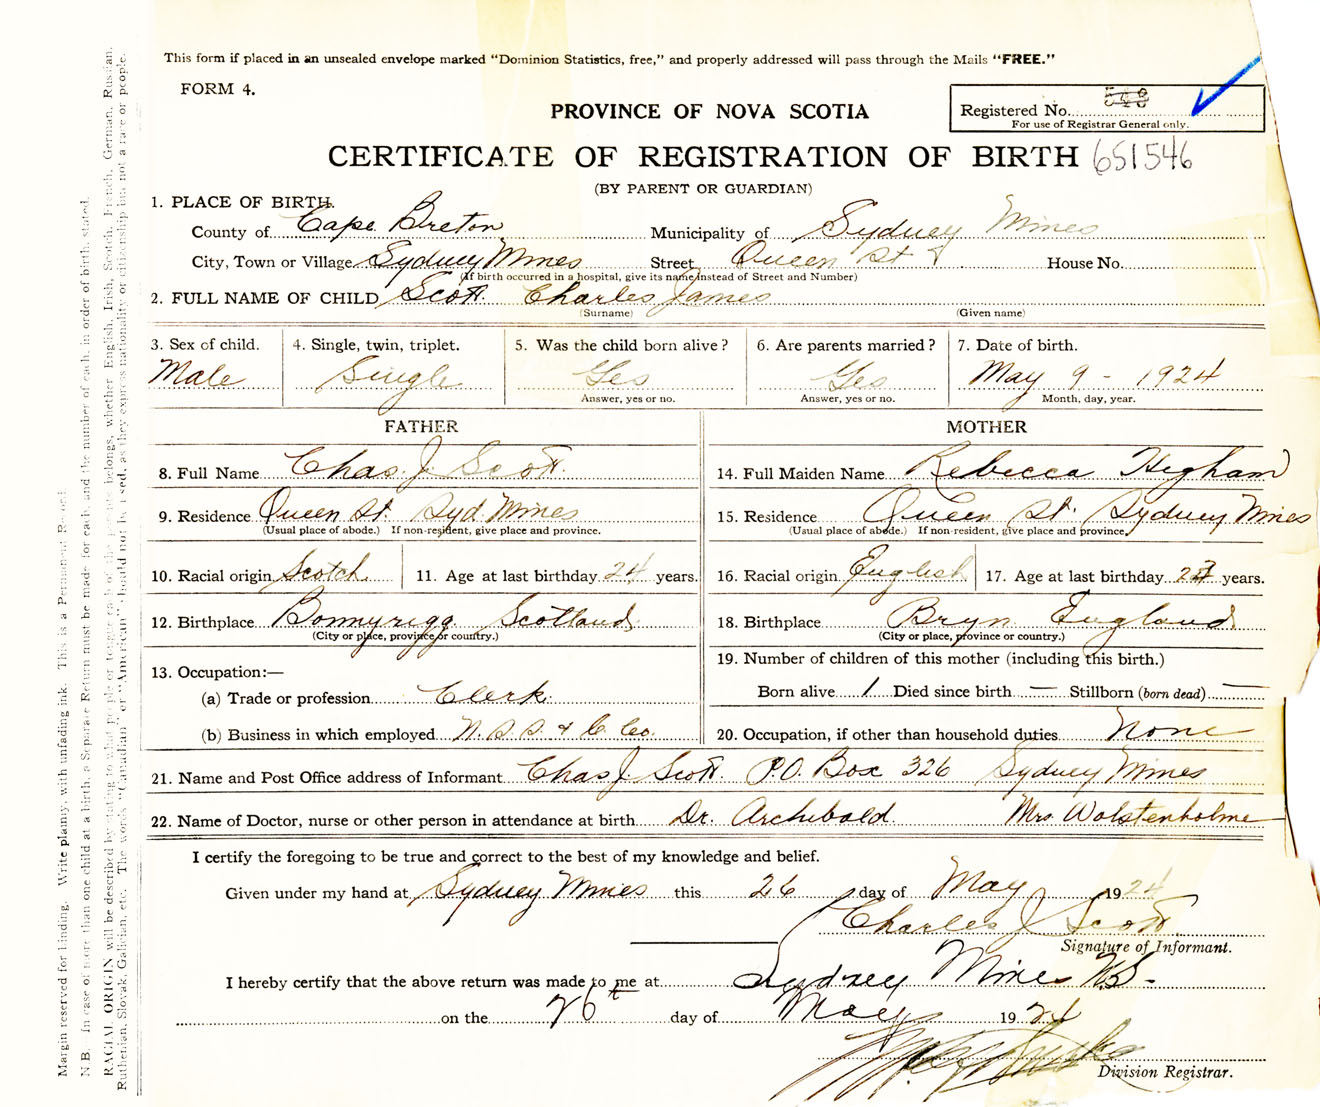 This form if placed in an unsealed envelope marked "Dominion Statistics, free," and properly addressed will pass through the Mails "FREE."
FORM 4.
Registered No.
For use of Registrar General only.
PROVINCE OF NOVA SCOTIA
CERTIFICATE OF REGISTRATION OF BIRTH 651546
(BY PARENT OR GUARDIAN)
1. PLACE OF BIRTH.
County of Cape Breton Municipality of Sydney Mines
City, Town or Village Sydney Mines Street Queen St House No.
(If birth occurred in a hospital, give its name instead of Street and Number)
2. FULL NAME OF CHILD Scott Charles James
(Surname) (Given name)
3. Sex of child. 4. Single, twin, triplet. 5. Was the child born alive? 6. Are parents married? 7. Date of birth.
Male Single Yes Yes May 9 - 1924
Answer, yes or no. Answer, yes or no. Month, day, year.
FATHER MOTHER
8. Full Name Chas. J. Scott. 14. Full Maiden Name Rebecca Higham
9. Residence Queen St. Syd. Mines 15. Residence Queen St. Sydney Mines
(Usual place of abode.) If non-resident, give place and province. (Usual place of abode.) If non-resident, give place and province.
10. Racial origin Scotch 11. Age at last birthday 24 years. 16. Racial origin English 17. Age at last birthday years.
12. Birthplace Bonnyrigg Scotland 18. Birthplace Bryn England
(City or place, province or country.) (City or place, province or country.)
13. Occupation:— 19. Number of children of this mother (including this birth.)
(a) Trade or profession Clerk. Born alive 1 Died since birth — Stillborn (born dead) —
(b) Business in which employed N. S. S. & C. Co. 20. Occupation, if other than household duties None
21. Name and Post Office address of Informant Chas J. Scott. P.O. Box 326 Sydney Mines
22. Name of Doctor, nurse or other person in attendance at birth Dr. Archibald Mrs. Wolstenholme
I certify the foregoing to be true and correct to the best of my knowledge and belief.
Given under my hand at Sydney Mines this 26 day of May 1924
Charles J Scott
Signature of Informant.
I hereby certify that the above return was made to me at Sydney Mines N.S-
on the 26th day of May 1924
Division Registrar.
Margin reserved for binding. Write plainly, with unfading ink. This is a Permanent Record.
N.B.—In case of more than one child at a birth, a Separate Return must be made for each and the number of each, in order of birth, stated.
RACIAL ORIGIN will be described by stating to what people or tongue each of the parents belongs, whether English, Irish, Scotch, French, German, Russian,
Ruthenian, Slovak, Galician, etc. The words "Canadian" or "American" should not be used, as they express nationality or citizenship but not a race or people.